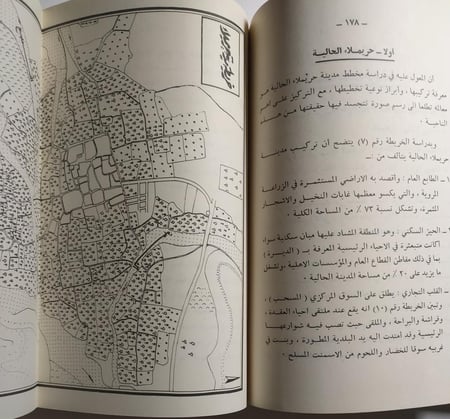 – ١٧٨ –
اولا – حريملاء الحالية
ان المعول عليه في دراسة مخطط مدينة حريملاء الحالية هو
معرفة تركيبها ، وابراز نوعية تخطيطها ، مع التركيز على أهم
معالمه تطلعا إلى رسم صورة تتجسد فيها حقيقتها من هذه
الناحية .
وبدراسة الخريطة رقم (٧) يتضح أن تركيب مدينة
حريملاء الحالية يتألف من :ـ
١ – الطابع العام : وأقصد به الاراضي المستثمرة في الزراعة
المروية ، والتي يكسو معظمها غابات النخيل والاشجار
المثمرة، وتشكل نسبة ٧٣ ٪ من المساحة الكلية .
– الحيز السكني : وهو المنطقة المشاد عليها مبان سكنية سواء
اكانت منبعثرة في الاحياء الرئيسية المعرفة بـ ( الديرة )
بما في ذلك مقاطن القطاع العام والمؤسسات الاهلية، وتشغل
ما يزيد على ٢٠ ٪ من مساحة المدينة الحالية .
– القلب التجاري : يطلق على السوق المركزي ( المسحب ) ،
وتبين الخريطة رقم (١٠) انه يقع عند ملتقى احياء العقدة ،
وقراشة والبراحة ، والملقى حيث تصب فيه شوارعها
الرئيسية وقد امتدت اليه يد البلدية المطورة ، وبنت في
غربيه سوقا للخضار واللحوم من الاسمنت المسلح .